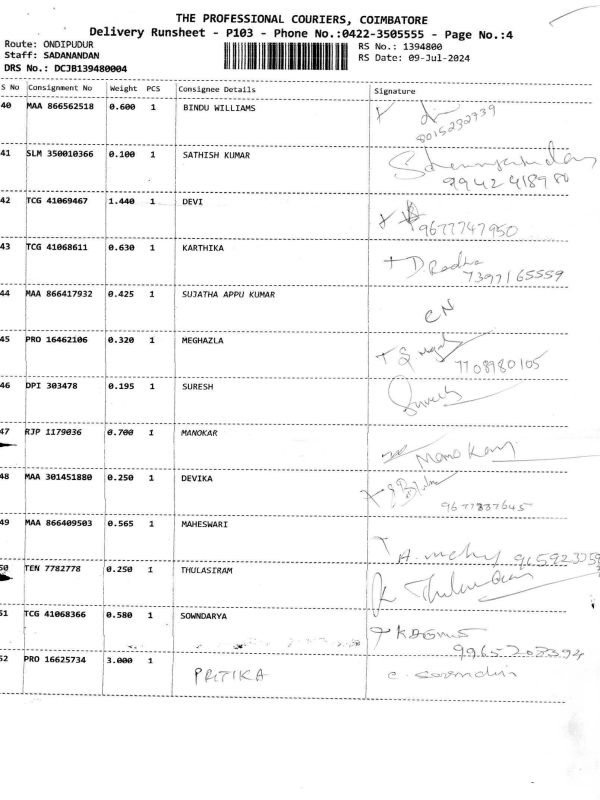 THE PROFESSIONAL COURIERS, COIMBATORE
Delivery Runsheet - P103 - Phone No.:0422-3505555 - Page No.:4
Route: ONDIPUDUR RS No.: 1394800
Staff: SADANANDAN RS Date: 09-Jul-2024
DRS No.: DCJB139480004
S No Consignment No Weight PCS Consignee Details Signature
40 MAA 866562518 0.600 1 BINDU WILLIAMS
8015232739
41 SLM 350010366 0.100 1 SATHISH KUMAR
42 TCG 41069467 1.440 1 DEVI
9677747950
43 TCG 41068611 0.630 1 KARTHIKA
D. Radha
7397165559
44 MAA 866417932 0.425 1 SUJATHA APPU KUMAR
CN
45 PRO 16462106 0.320 1 MEGHAZLA
7708980105
46 DPI 303478 0.195 1 SURESH
Suresh
47 RJP 1179036 0.700 1 MANOKAR
48 MAA 301451880 0.250 1 DEVIKA
9677337645
49 MAA 866409503 0.565 1 MAHESWARI
50 TEN 7782778 0.250 1 THULASIRAM
51 TCG 41068366 0.580 1 SOWNDARYA
9965208394
52 PRO 16625734 3.000 1
PRITIKA